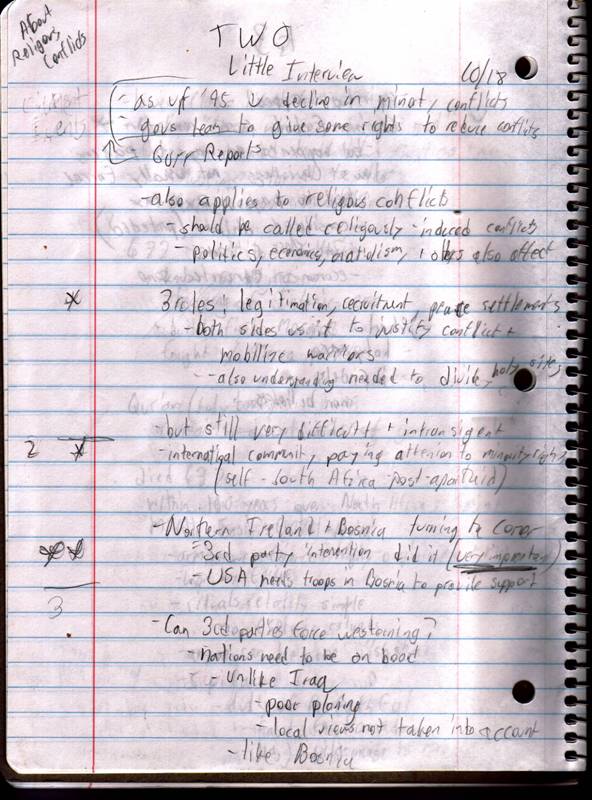 About
Religious
Conflicts
TWO
Little Interview
10/18
- as of '95 ↓ decline in minority conflicts
- govs tean to give some rights to reduce conflicts
Gurr Reports
- also applies to religous conflicts
- should be called religously-induced conflicts
- politics, economics, nationalism, + others also affect
* 3 roles: legitimation, recruitment, peace settlements
- both sides use it to justify conflict +
mobilize warriors
- also understanding needed to divide holy sites
- but still very difficult + intransigent
2 * - international community paying attention to minority rights
(self - South Africa - post-apartuid)
- Northern Ireland + Bosnia turning the corner
** - 3rd party intervention did it (very important)
- USA needs troops in Bosnia to provide support
3
- Can 3rd parties force westerning?
- nations need to be on board
- unlike Iraq
- poor planing
- local views not taken into account
- like Bosnia